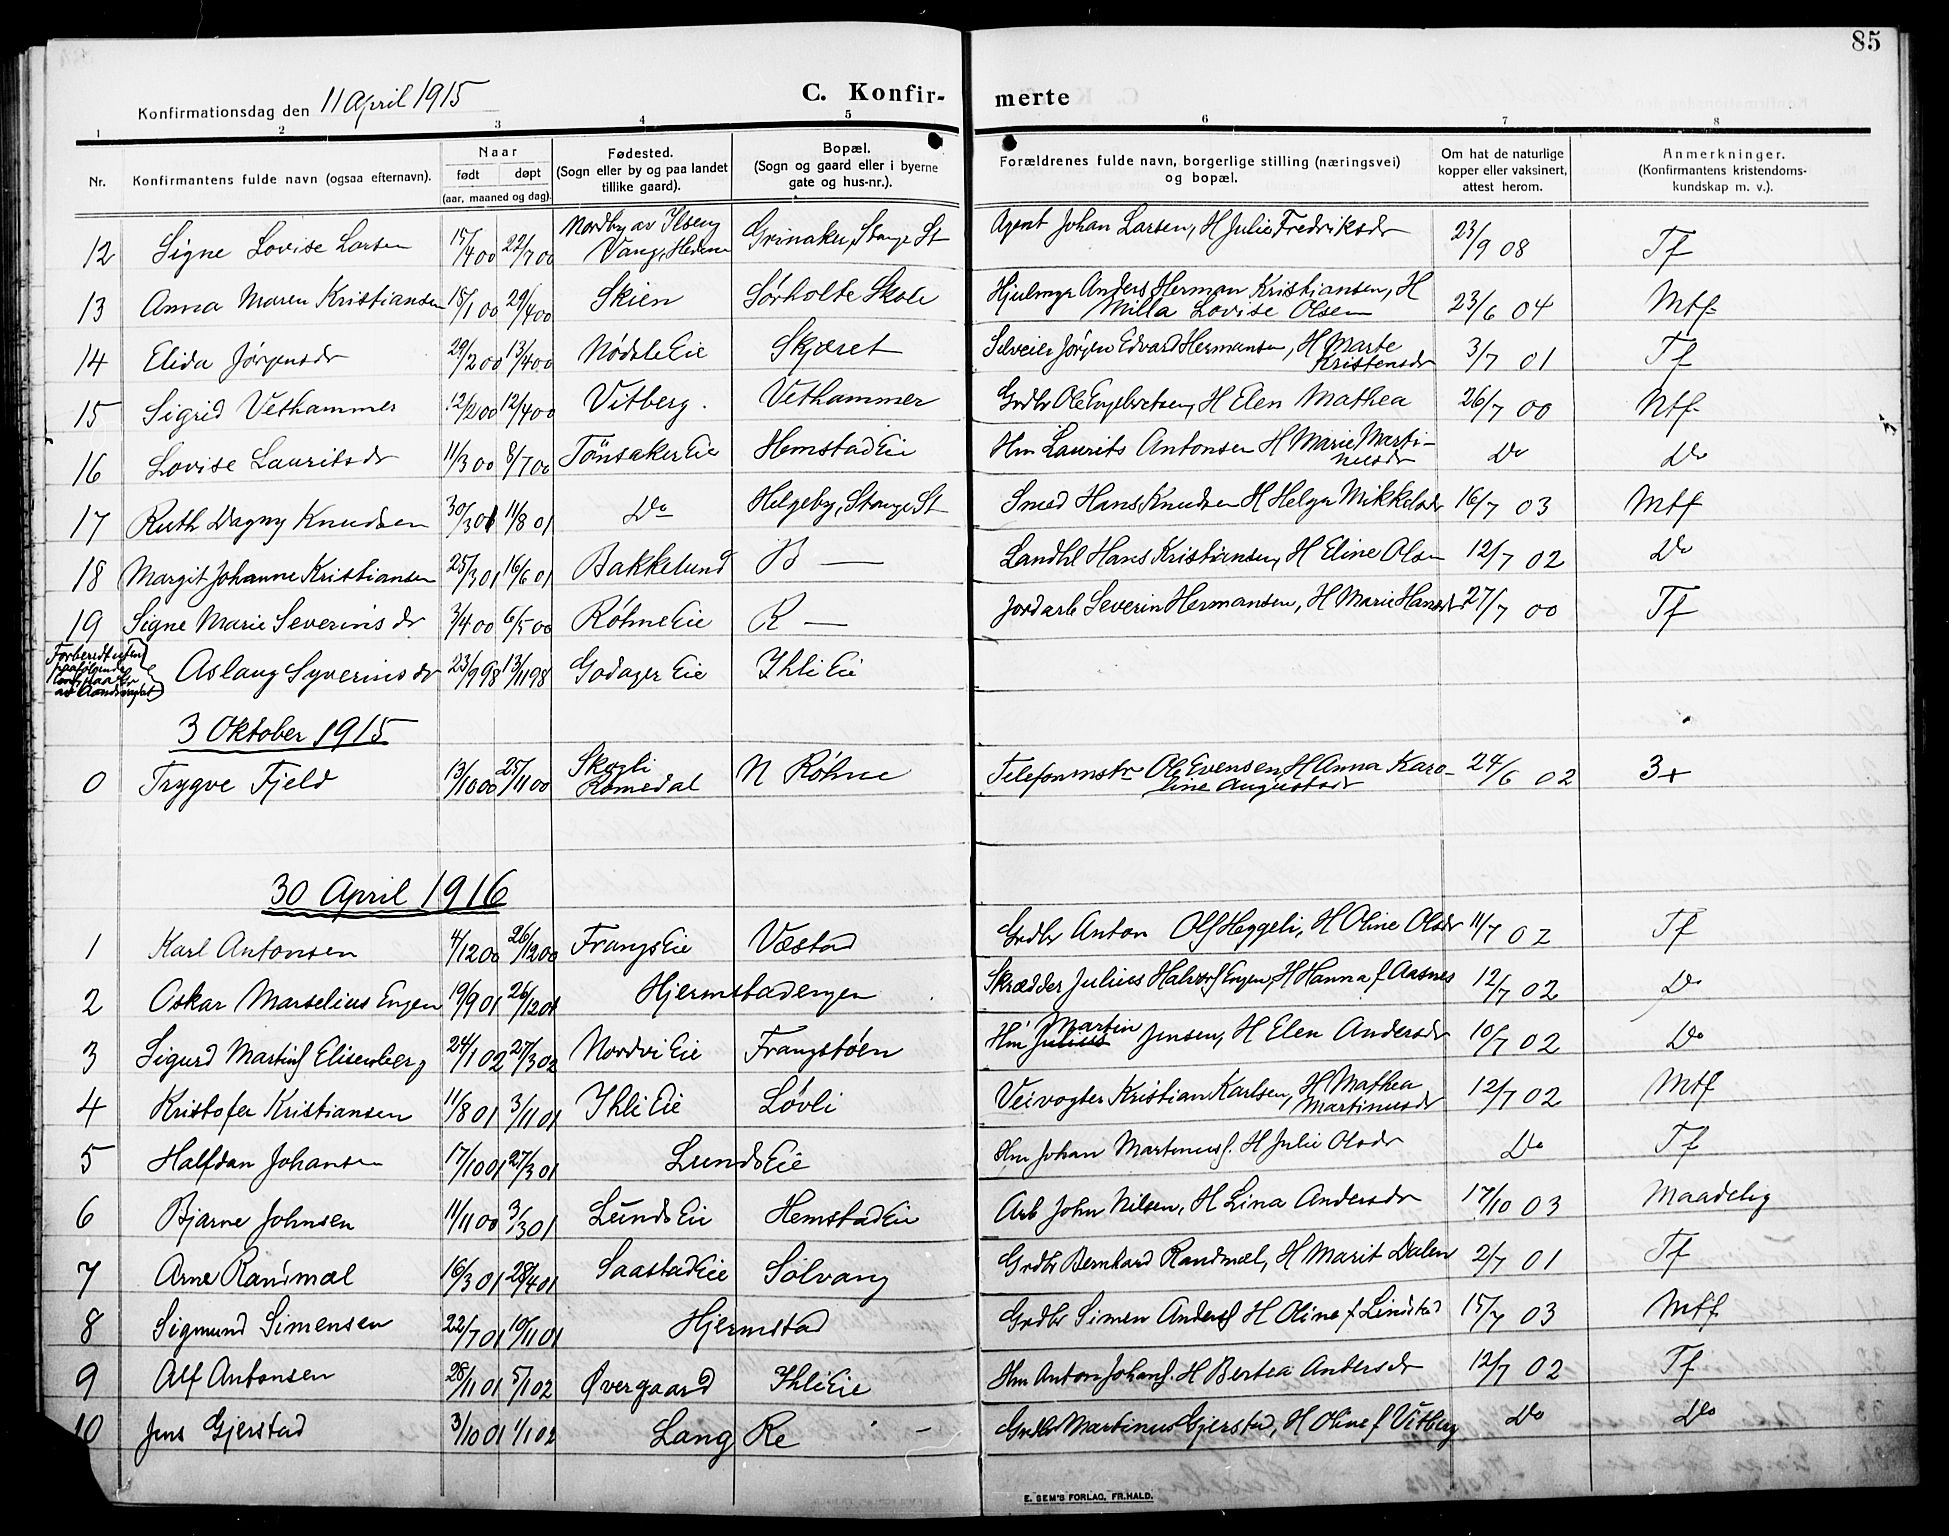 85
Konfirmationsdag den 11 April 1915
C. Konfir- merte
1 2 3 4 5 6 7 8
Nr. Konfirmantens fulde navn (ogsaa efternavn). Naar født døpt (aar, maaned og dag). Fødested. (Sogn eller by og paa landet tillike gaard). Bopæl. (Sogn og gaard eller i byerne gate og hus-nr.). Forældrenes fulde navn, borgerlige stilling (næringsvei) og bopæl. Om hat de naturlige kopper eller vaksinert, attest herom. Anmerkninger. (Konfirmantens kristendoms- kundskap m. v.).
12 Signe Lovise Larsen 15/4 00 22/7 00 Nordby av Ilseng Vang, Hedem Grinaker, Stange St Agent Johan Larsen, H Julie Fredriksdr 23/9 08 Tf
13 Anna Maren Kristiansen 18/1 00 29/4 00 Skien Sørholte Skole Hjulmgr Anders Herman Kristiansen, H Milla Lovise Olsen 23/6 04 Mtf
14 Elida Jørgensdr 29/2 00 13/4 00 Nødsle Eie Skjæret Selveier Jørgen Edvard Hermansen, H Marte Kristensdr 3/7 01 Tf
15 Sigrid Vethammer 12/2 00 12/4 00 Vitberg. Vethammer Grdbr Ole Engebretsen, H Elen Mathea 26/7 00 Mtf
16 Lovise Lauritsdr 11/3 00 8/7 00 Tönsaker Eie Hemstad Eie Hm Laurits Antonsen H Marie Martinusdr Do Do
17 Ruth Dagny Knudsen 30/3 01 11/8 01 Do Helgeby, Stange St Smed Hans Knudsen H Helga Mikkelsdr 16/7 03 Mtf
18 Margit Johanne Kristiansen 25/3 01 16/6 01 Bakkelund B — Landhl Hans Kristiansen, H Eline Olsen 12/7 02 Do
19 Signe Marie Severinsdr 3/4 00 6/5 00 Røhne Eie R — Jordarb Severin Hermansen, H Marie Hansdr 27/7 00 Tf
Aslaug Syverinsdr 23/9 98 13/11 98 Godager Eie Ihli Eie
3 Oktober 1915
0 Trygve Fjeld 13/10 00 25/11 00 Skogli Romedal N Røhne Telefonmstr Ole Evensen, H Anna Karoline Augustsdr 24/6 02 3+
30 April 1916
1 Karl Antonsen 4/12 00 26/12 00 Frangs Eie Væstad Grdbr Anton Olf Heggeli, H Oline Olsdr 11/7 02 Tf
2 Oskar Marselius Engen 19/9 01 26/12 01 Hjermstadengen Skrædder Julius Halvorf Engen, H Hanna f Aasnes 12/7 02 Do
3 Sigurd Martinf Elisenberg 24/1 02 27/3 02 Nordvi Eie Frangstøen Hm Julius Martin Jensen, H Elen Andersdr 10/7 02 Do
4 Kristofer Kristiansen 11/8 01 3/11 01 Ihli Eie Løvli Veivogter Kristian Karlsen, H Mathea Martinusdr 12/7 02 Mtf
5 Halfdan Johansen 17/10 01 27/3 01 Lunds Eie Hm Johan Martinusf. H Julie Olsdr Do Tf
6 Bjarne Johnsen 11/11 00 3/3 01 Lunds Eie Hemstad Eie Arb John Nilsen, H Lina Andersdr 17/10 03 Maadelig
7 Arne Randmæl 16/3 01 28/4 01 Saastad Eie Solvang Grdbr Bernhard Randmæl, H Marit Dalen 2/7 01 Tf
8 Sigmund Simensen 22/7 01 10/11 01 Hjermstad Grdbr Simen Andersf H Oline f Lindstad 15/7 03 Mtf
9 Alf Antonsen 28/11 01 5/1 02 Øvergaard Ihli Eie Hm Anton Johansf. H Bertea Andersdr 12/7 02 Tf
10 Jens Gjerstad 3/10 01 1/1 02 Lang Re Grdbr Martinus Gjerstad, H Oline f Vitberg Do Do
E. SEM'S FORLAG, FR.HALD.